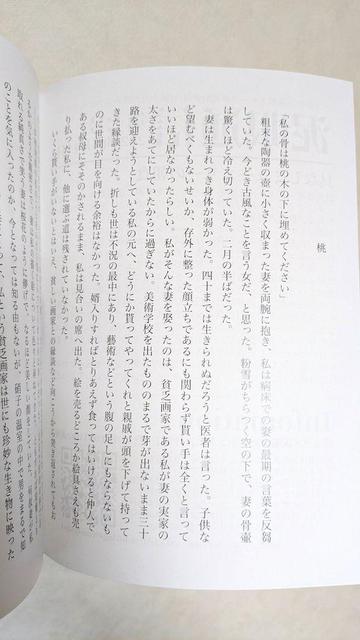 桃
「私の骨は桃の木の下に埋めてください」
粗末な陶器の壺に小さく収まった妻を両腕に抱き、私は病床での妻の最期の言葉を反芻
していた。今どき古風なことを言う女だ、と思った。粉雪がちらつく空の下で、妻の骨壺
は驚くほど冷え切っていた。二月の半ばだった。
妻は生まれつき身体が弱かった。四十までは生きられぬだろうと医者は言った。子供な
ど望むべくもないせいか、存外に整った顔立ちであるにも関わらず貰い手は全くと言って
いいほど居なかったらしい。私がそんな妻を娶ったのは、貧乏画家である私が妻の実家の
太さをあてにしていたからに過ぎない。美術学校を出たもののまるで芽が出ないまま三十
路を迎えようとしている私の元へ、どうにか貰ってやってくれと親戚が頭を下げて持って
きた縁談だった。折しも世は不況の最中にあり、藝術などという腹の足しにもならないも
のに世間が目を向ける余裕はなかった。婿入りすればとりあえず食ってはいけると仲人で
ある叔母にそそのかされるまま、私は見合いの席へ出た。絵を売るどころか絵具さえも売
り払った私に、他に選ぶ道は残されていなかった。
いくら貰い手がないとはいえ、貧しい画家との縁談など向こうから突き返されてもお
取れる純真さで笑う妻は桜花のように儚げで
のことを気に入ったのか、今となっては知る由もないが、硝子の温室の中で箱をまるで知
という貧乏画家は世にも珍妙な生き物に映った